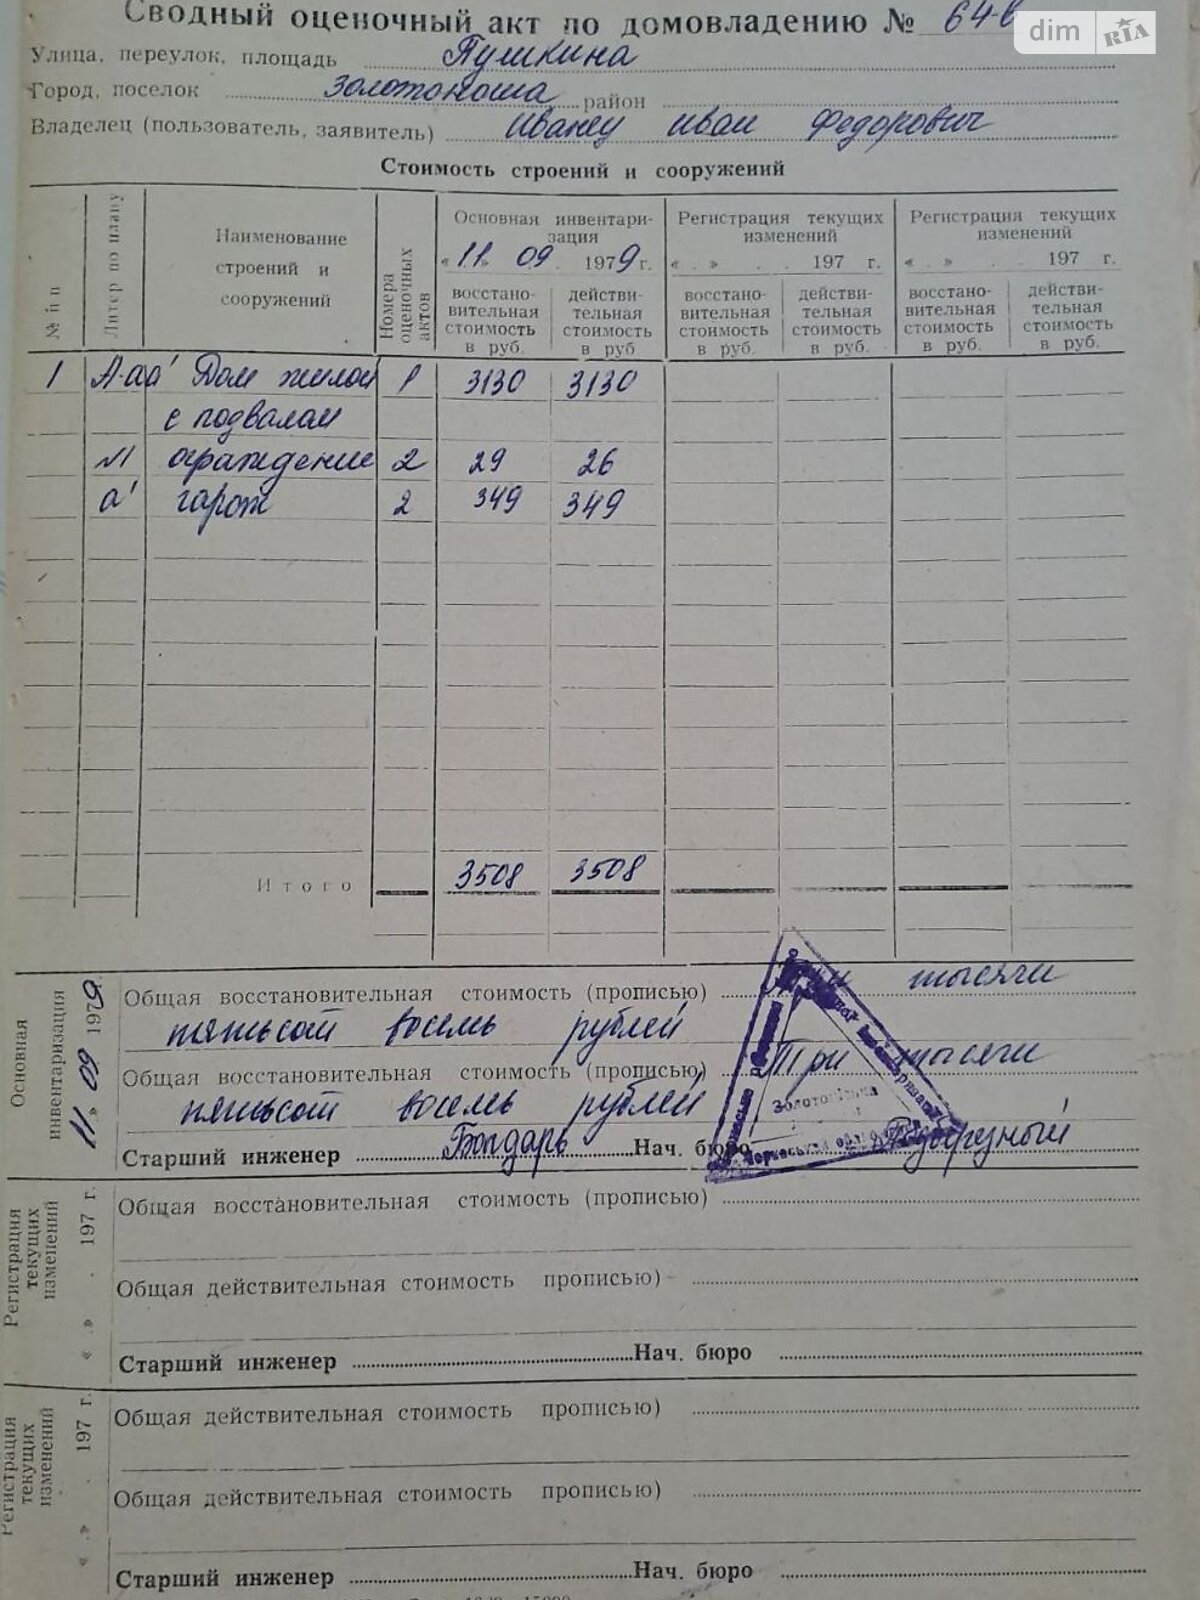 Сводный оценочный акт по домовладению № 64-в
dim RIA
Улица, переулок, площадь Пушкина
Город, поселок Золотоноша район
Владелец (пользователь, заявитель) Иванец Иван Федорович
Стоимость строений и сооружений
№ п п
Литер по плану
Наименование строений и сооружений
Номера оценочных актов
Основная инвентаризация
« 11 » 09 . 1979 г.
Регистрация текущих изменений
« . » . . 197 г.
Регистрация текущих изменений
« . » . . 197 г.
восстано- действи- восстано- действи- восстано- действи-
вительная тельная вительная тельная вительная тельная
стоимость стоимость стоимость стоимость стоимость стоимость
в руб. в руб в руб. в руб. в руб. в руб.
1 А-аа' Дом жилой 1 3130 3130
с подвалом
N1 ограждение 2 29 26
а' гараж 2 349 349
Итого 3508 3508
Основная инвентаризация
11 » 09 1979.
Общая восстановительная стоимость (прописью) Три тысячи
пятьсот восемь рублей
Общая восстановительная стоимость (прописью) Три тысячи
пятьсот восемь рублей
Старший инженер Бондарь Нач. бюро Подгрезный
Регистрация текущих изменений
« . » . 197 г.
Общая восстановительная стоимость (прописью)
Общая действительная стоимость прописью)
Старший инженер Нач. бюро
Регистрация текущих изменений
« . » . 197 г.
Общая действительная стоимость прописью)
Общая действительная стоимость прописью)
Старший инженер Нач. бюро